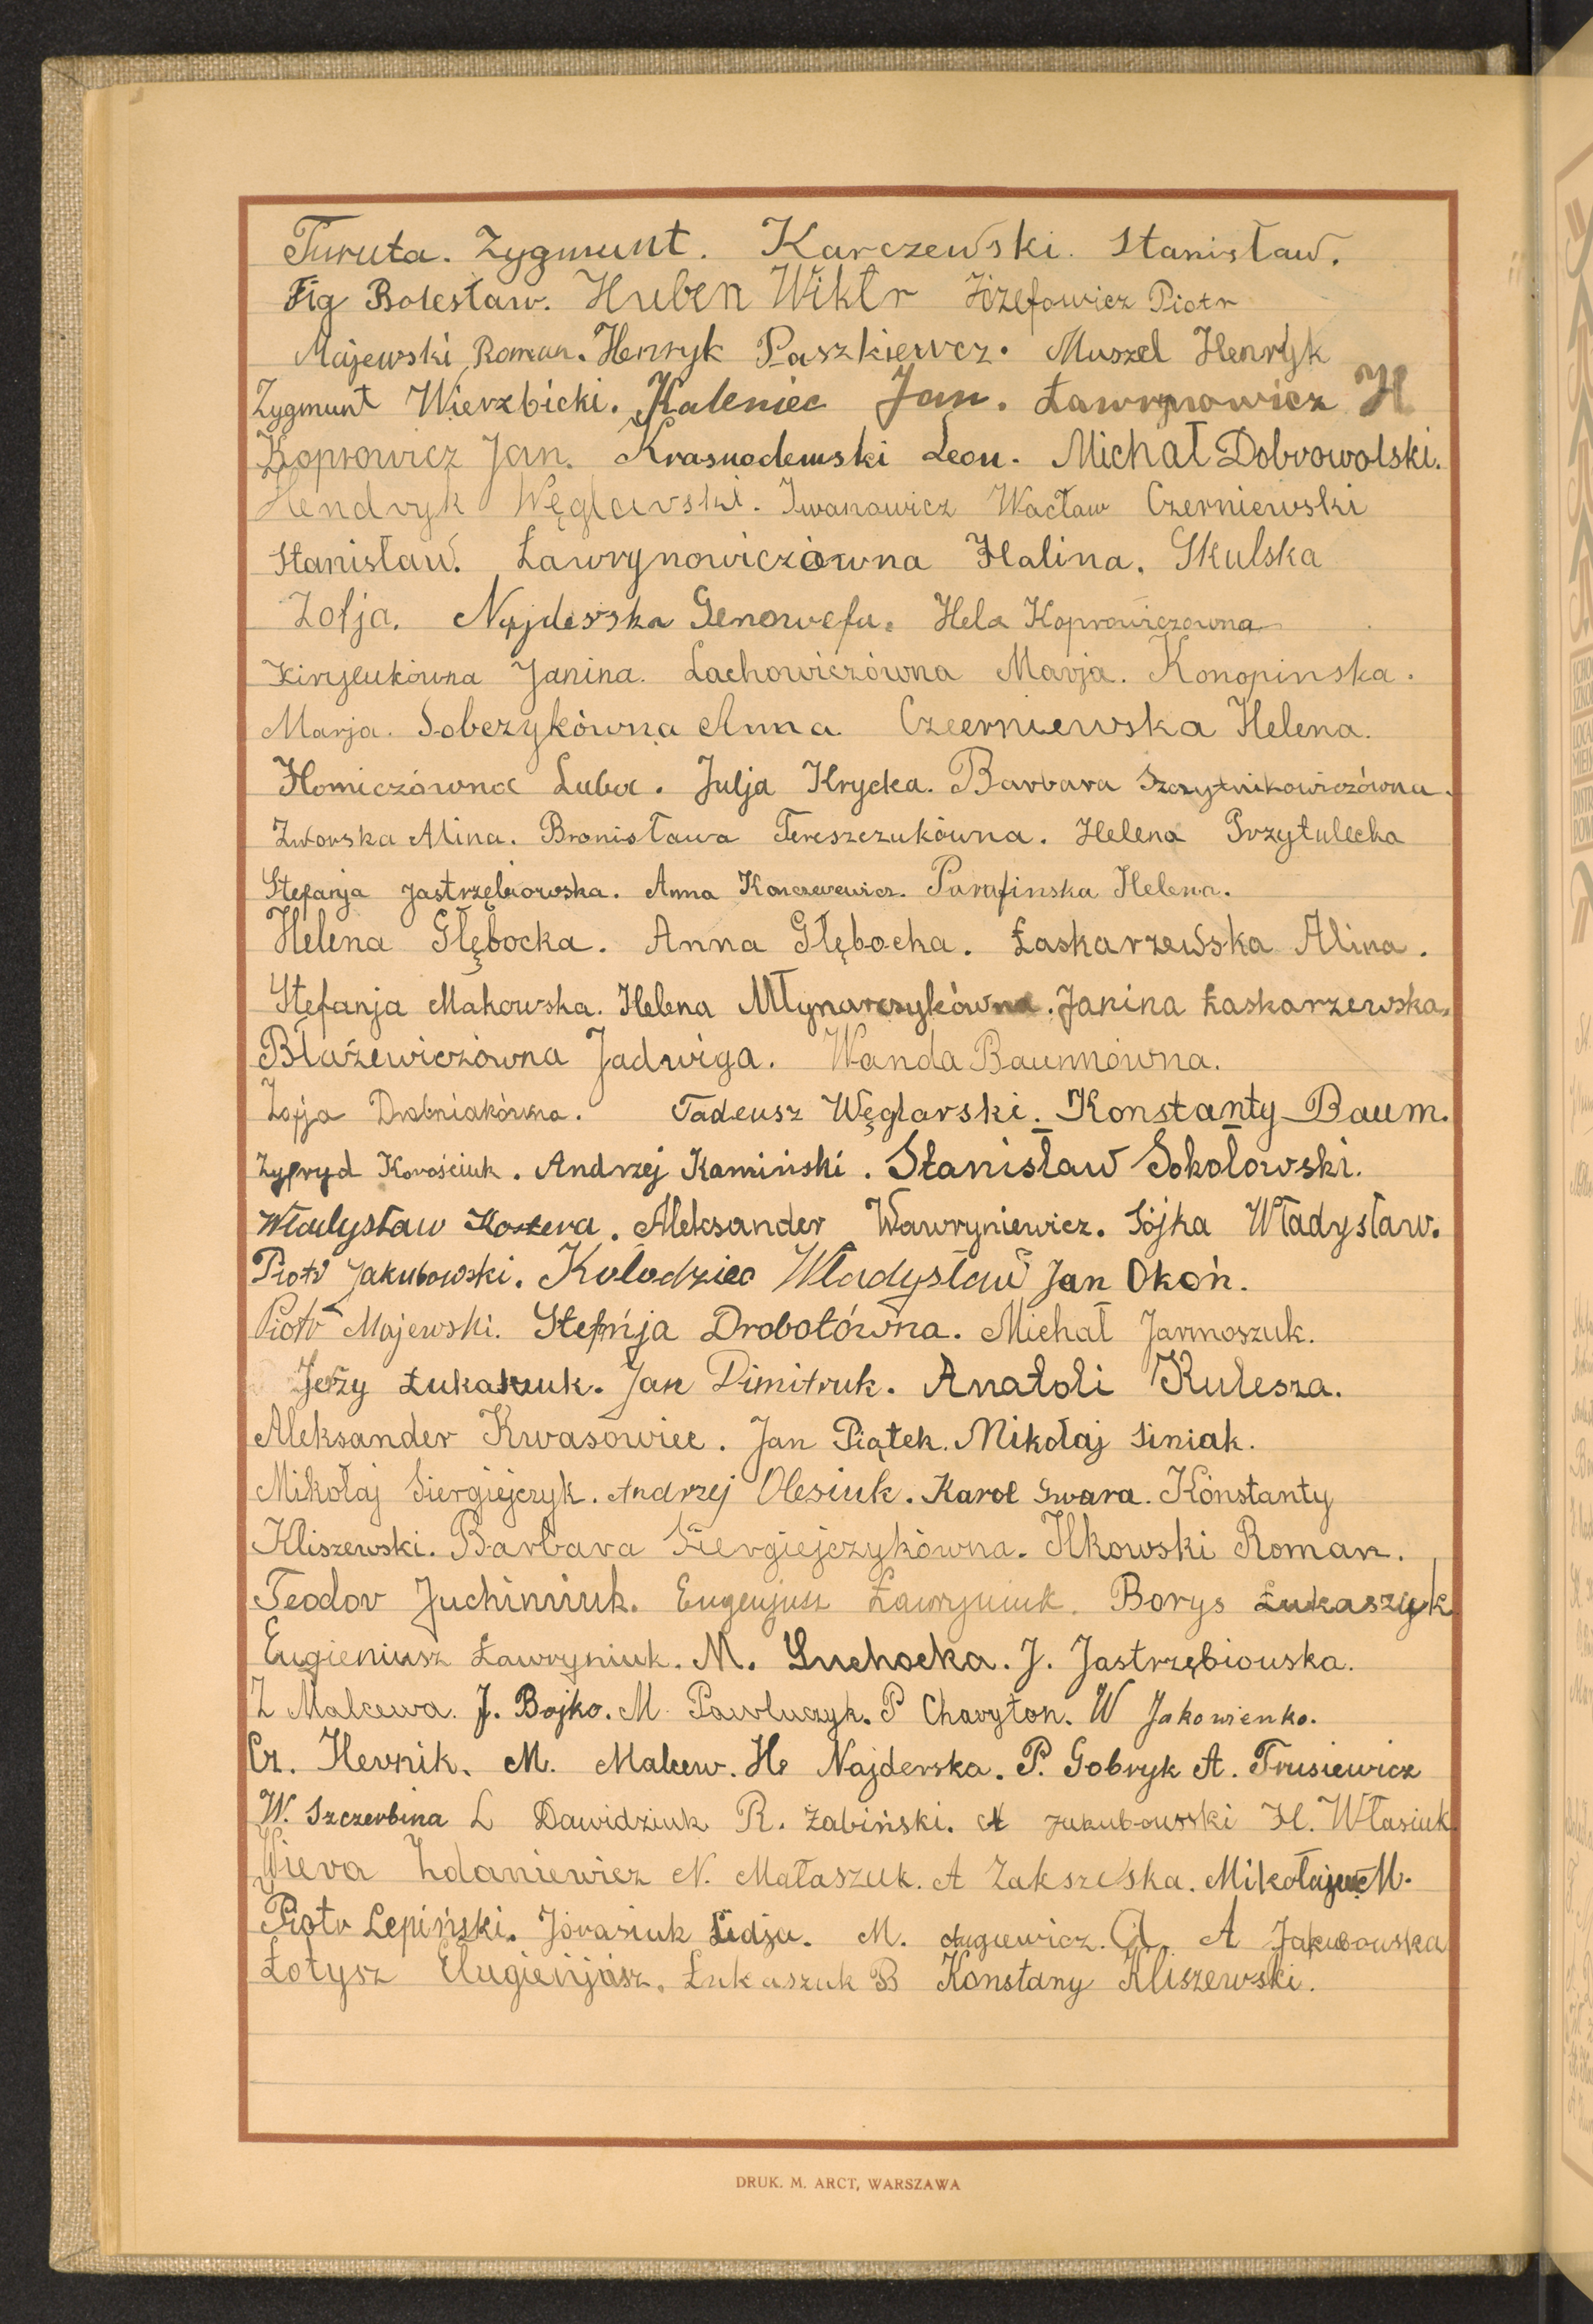 Turuta. Zygmunt. Karczewski. Stanisław.
Fig Bolesław. Huben Wiktr Józefowicz Piotr
Majewski Roman. Henryk Paszkiewcz. Muszel Henryk
Zygmunt Wierzbicki. Kaleniec Jan. Ławrynowicz H
Koprowicz Jan. Krasnodemski Leon. Michał Dobrowolski.
Hendryk Węglarski. Iwanowicz Wacław Czerniewski
Stanisław. Ławrynowiczówna Halina. Skulska
Zofja. Najderska Genowefa. Hela Koprowiczowna
Kirylukówna Janina. Lachowiczówna Marja. Konopinska.
Marja. Sobczykówna Anna. Czeerniewska Helena.
Homiczówna Luba. Julja Krycka. Barbara Szczytnikowiczówna.
Zworska Alina. Bronisława Tereszczukówna. Helena Przytulecka
Stefanja Jastrzębiowska. Anna Konczewewicz. Parafinska Helena.
Helena Głębocka. Anna Głębocka. Łaskarzewska Alina.
Stefanja Makowska. Helena Młynarczykówna. Janina Łaskarzewska.
Błażewiczówna Jadwiga. Wanda Baumówna.
Zofja Drobniakówna. Tadeusz Węglarski. Konstanty Baum.
Zyfryd Korościuk. Andrzej Kamiński. Stanisław Sokołowski.
Władysław Kostera. Aleksander Wawryniewicz. Sójka Władysław.
Piotr Jakubowski. Kołodziec Władysław Jan Okoń.
Piotr Majewski. Stefńja Drobotówna. Michał Jarmoszuk.
Jerzy Łukaszuk. Jan Dimitruk. Anatoli Kulesza.
Aleksander Kwasowiec. Jan Piątek. Mikołaj Siniak.
Mikołaj Siergiejczyk. Andrzej Olesiuk. Karol Gwara. Konstanty
Kliszewski. Barbara Siergiejczykówna. Ilkowski Roman.
Teodor Juchimiuk. Eugenjusz Ławryniuk. Borys Łukaszyk
Eugieniusz Ławryniuk. M. Suchocka. J. Jastrzębiouska.
Z Malcewa. J. Bojko. M. Pawluczyk. P Charyton. W Jakowienko.
Cz. Hernik. M. Malcew. He Najderska. P. Gobryk A. Trusiewicz
W. Szczerbina L Dawidziuk R. Żabiński. A Jakubowski H. Własiuk
Wiera Zdaniewicz N. Małaszuk. A Zakszeska. Mikołajuk M.
Piotr Lepiński. Jórasiuk Lidja. M. A A Jakubowska
Łotysz Eługienjusz. Łukaszuk B Konstany Kliszewski.
DRUK. M. ARCT, WARSZAWA